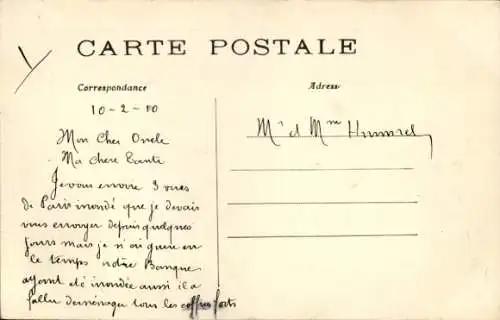 CARTE POSTALE
Correspondance
Adresse
10-2-10
Mon Cher Oncle
Ma chere Tante
Je vous envoie 3 vues
de Paris inondé que je devais
vous envoyer depuis quelques
jours mais je n'ai guère eu
le temps notre Banque
ayant été inondée aussi il a
fallu deménager tous les coffres forts
Mr et Mme Hummel